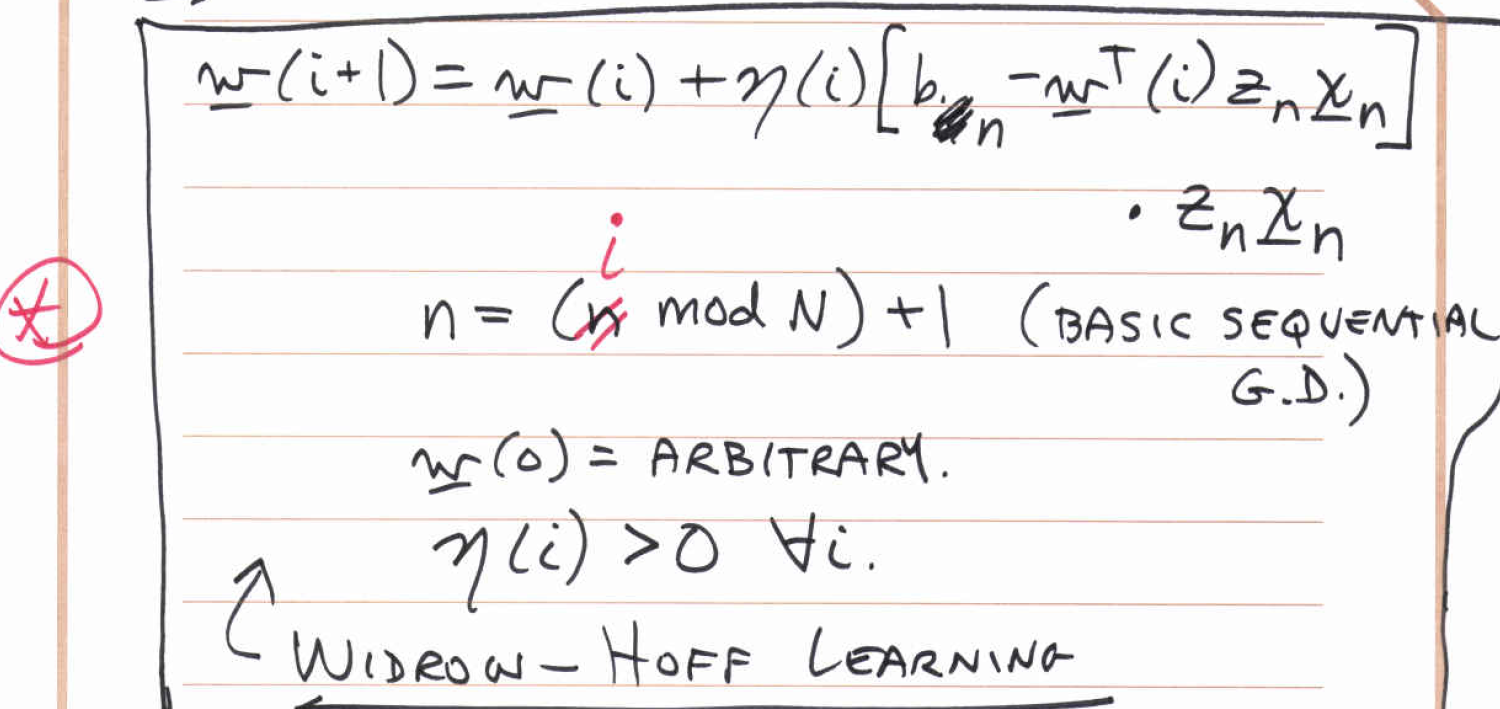 w(i+1) = w(i) + η(i)[b_n - w^T(i) z_n x_n]
· z_n x_n
i
n = (n mod N) + 1 (BASIC SEQUENTIAL
G.D.)
w(0) = ARBITRARY.
η(i) > 0 ∀i.
WIDROW - HOFF LEARNING